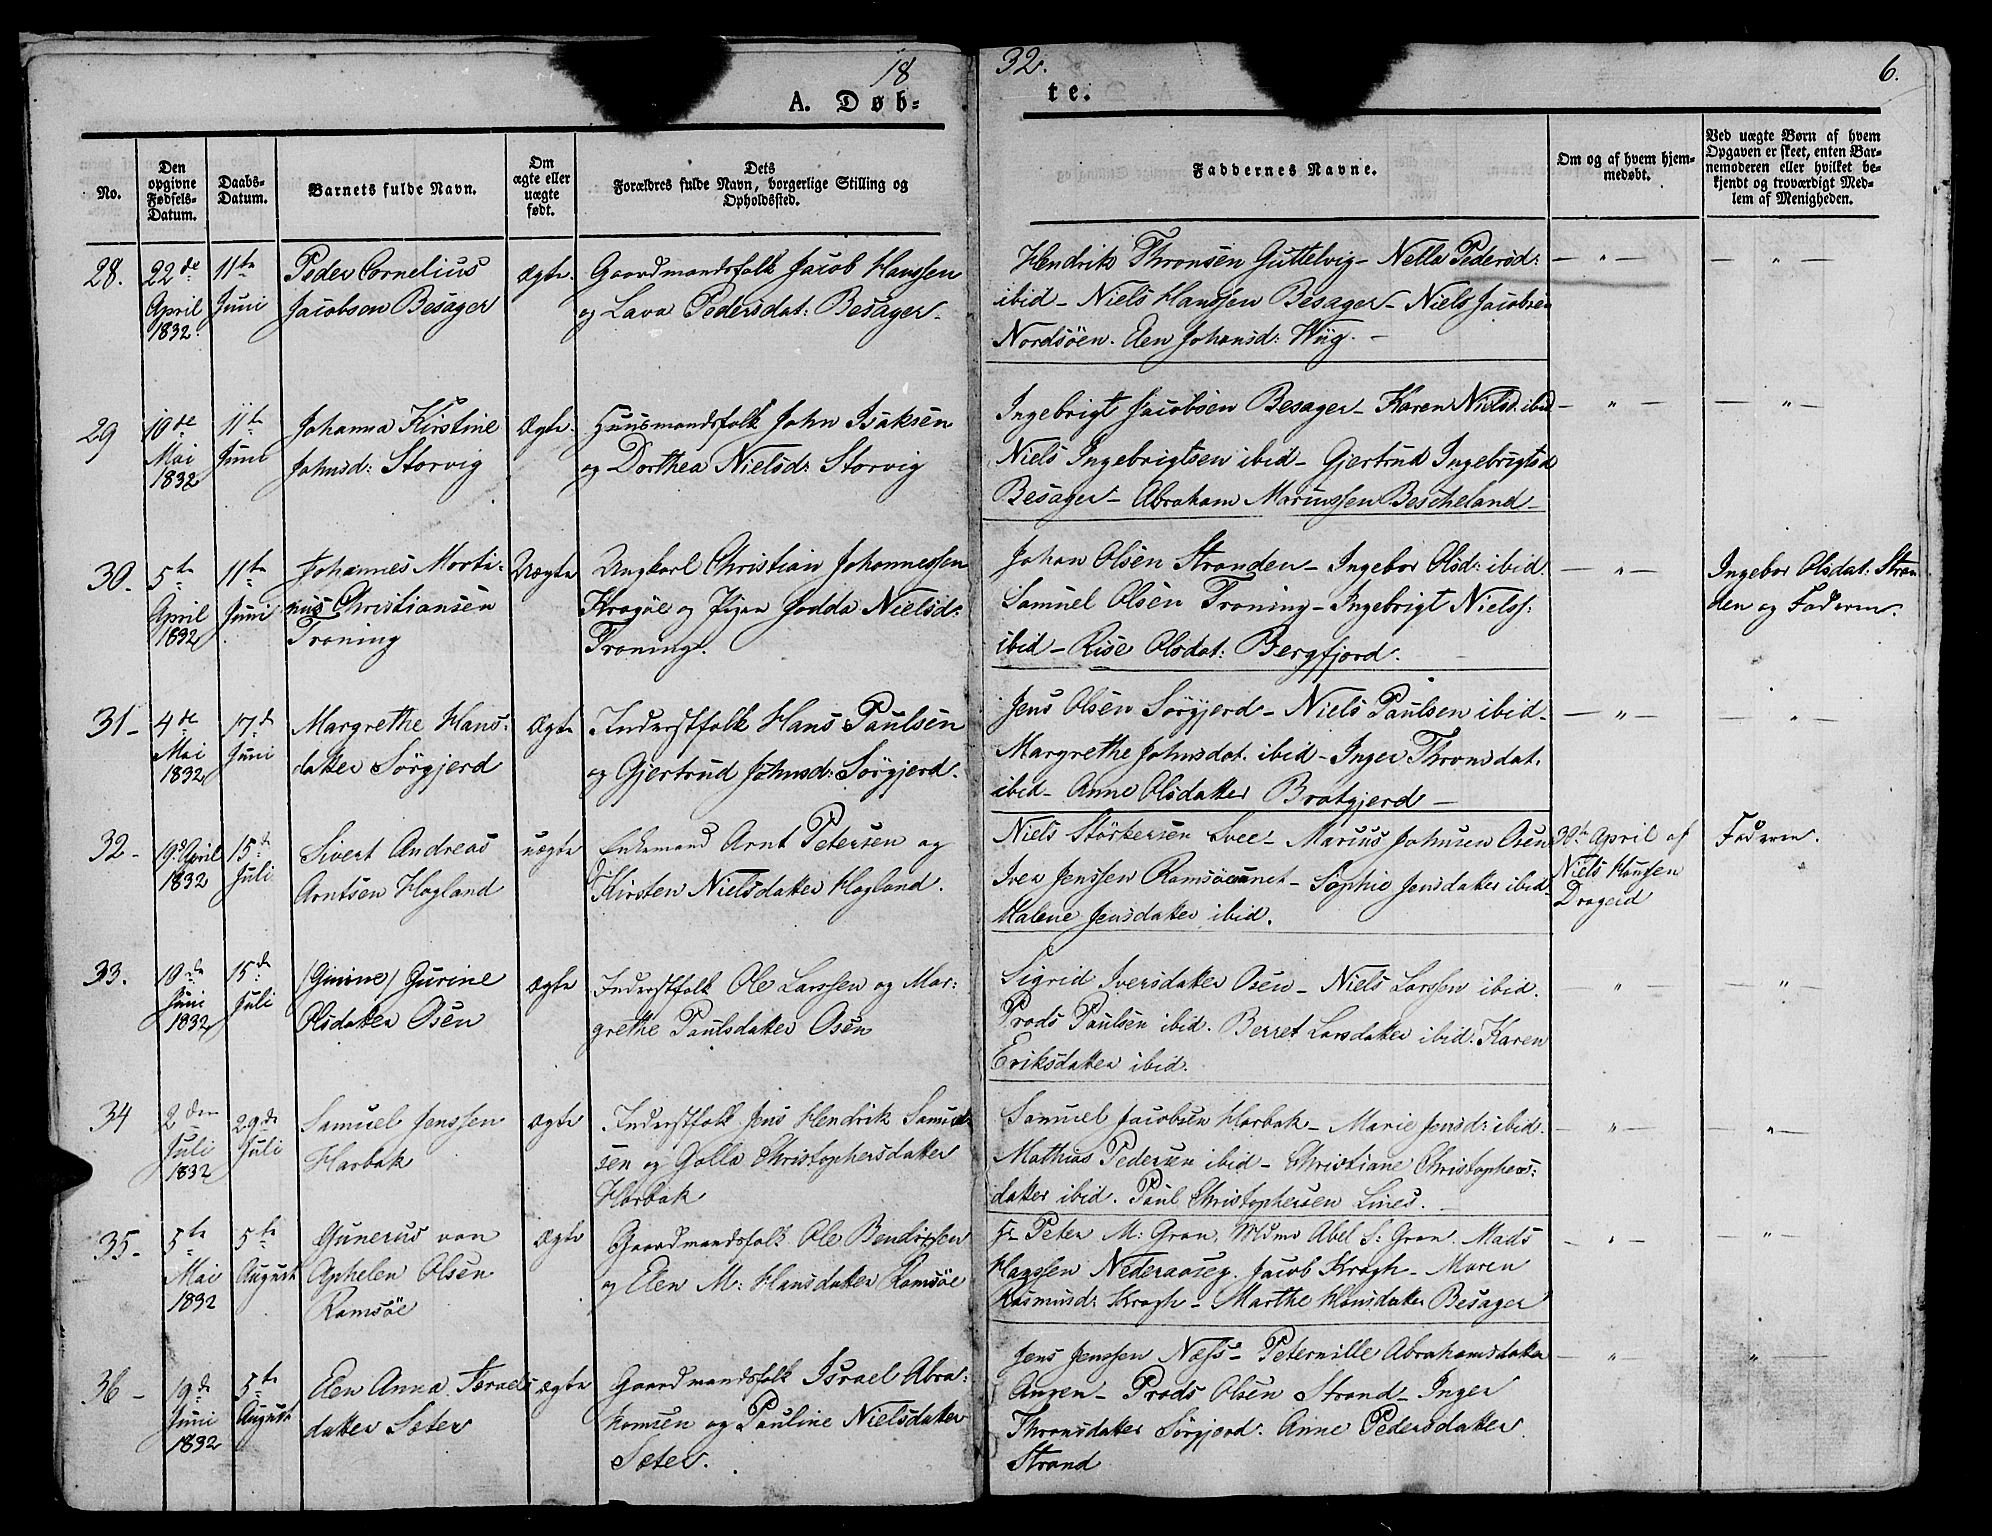 18
32.
6.
A. Døb-
te.
No.
Den
opgivne
Fødsels-
Datum.
Daabs-
Datum.
Barnets fulde Navn.
Om
ægte eller
uægte
født.
Dets
Forældres fulde Navn, borgerlige Stilling og
Opholdssted.
Faddernes Navne.
Om og af hvem hjem-
medøbt.
Ved uægte Børn af hvem
Opgaven er skeet, enten Bar-
nemoderen eller hvilket be-
kjendt og troværdigt Med-
lem af Menigheden.
28.
22de
April
1832.
11te
Juni
Peder Cornelius
Jacobsen Besager
Ægte.
Gaardmandsfolk Jacob Hanssen
og Lava Pedersdat: Besager.
Hendrik Thronsen Guttelvig - Nella Pedersd:
ibid - Niels Hanssen Besager - Niels Jacobsen
Nordsöen. Elen Johansd: Wiig. -
— " —
— " —
29
10de
Mai
1832
11te
Juni
Johanna Kirstine
Johnsd: Storvig
Ægte.
Huusmandsfolk John Isaksen
og Dorthea Nielsd: Storvig
Ingebrigt Jacobsen Besager - Karen Nielsd: ibid
Niels Ingebrigtsen ibid - Gjertrud Ingebrigtsd
Besager - Abraham Mariussen Bescheland -
— " —
— " —
30.
5te
April
1832
11te
Juni
Johannes Morti-
nus Christiansen
Troning
Uægte
Ungkarl Christian Johannessen
Kragöe og Pigen Jodda Nielsd:
Troning.
Johan Olsen Stranden - Ingebor Olsd: ibid.
Samuel Olsen Troning - Ingebrigt Nielss:
ibid - Rise Olsdat: Bergfjord.
— " —
Ingebor Olsdat: Stran
den og Faderen.
31 -
4de
Mai
1832
17d
Juni
Margrethe Hans-
datter Sörgjerd
Ægte
Inderstfolk Hans Paulsen
og Gjertrud Johnsd: Sörgjerd.
Jens Olsen Sörgjerd - Niels Paulsen ibid -
Margrethe Johnsdat. ibid - Inger Thronsdat.
ibid - Anne Olsdatter Bratgjerd -
— " —
— " —
32 -
19d April
1832
15de
Juli
Sivert Andreas
Arntsen Hogland
uægte
Enkemand Arnt Petersen og
Kirsten Nielsdatter Hogland.
Niels Störkersen Svee - Marius Johnsen Osen
Iver Jenssen - Sophie Jensdatter ibid
Malene Jensdatter ibid.
30te April af
Niels Hanssen
Drageid
Faderen.
33.
10de
Juni
1832
15de
Juli
(Gurine) Gurine
Olsdatter Osen
Ægte
Inderstfolk Ole Larssen og Mar-
grethe Paulsdatter Osen
Sigrid Iversdatter Osen - Niels Larssen ibid.
Prods Paulsen ibid. Berret Larsdatter ibid. Karen
Eriksdatter ibid.
— " —
— " —
34
2den
Juli
1832
29de
Juli
Samuel Jenssen
Harbak
Ægte
Inderstfolk Jens Hendrik Samuel-
sen og Golla Christophersdatter
Harbak
Samuel Jacobsen Harbak - Marie Jensd: ibid.
Mathias Pedersen ibid - Christiane Christophers-
datter ibid. Paul Christophersen Lines.
— " —
— " —
35 -
5te
Mai
1832
5te
August
Gunerus von
Aphelen Olsen
Ramsöe
Ægte
Gaardmandsfolk Ole Bendixsen
og Elen M: Hansdatter Ramsöe
Hr Peter M: Gran. Mdme Abel S: Gran. Mads
Hanssen Nederaaseg. Jacob Krogh - Maren
Rasmusd: Krogh - Marthe Hansdatter Besager
— " —
— " —
36 -
19de
Juni
1832
5te
August
Elen Anna Israels
datter Sæter
Ægte
Gaardmandsfolk Israel Abra-
hamsen og Pauline Nielsdatter
Sæter.
Jens Jenssen Næss - Peternille Abrahamsdatter
Angen - Prods Olsen Strand - Inger
Thronsdatter Sörgjerd. Anne Pedersdatter
Strand
— " —
— " —